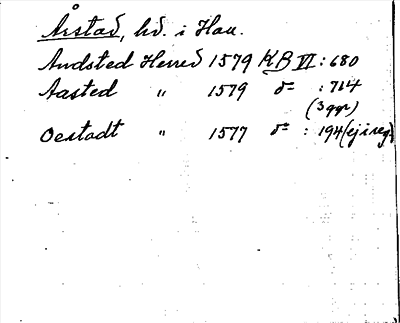 Årstad, hd. i Hall.
Audsted Herred 1579 KB VI : 680
Aasted " 1579 d= : 714
(3 ggr)
Oestadt " 1577 d= : 194 (ej i reg.)